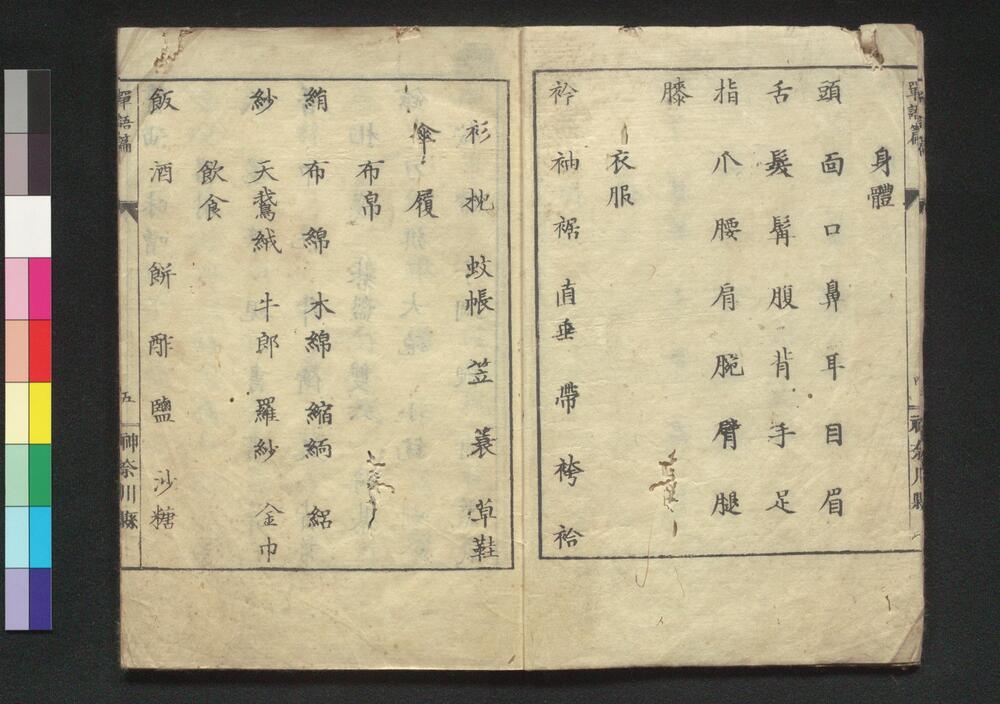 單語篇
身體
頭 面 口 鼻 耳 目 眉
舌 髮 髯 腹 背 手 足
指 爪 腰 肩 腕 臂 腿
膝
衣服
衿 袖 裾 直垂 帶 袴 袷
神奈川縣
衫 枕 蚊帳 笠 蓑 草鞋
傘 履
布帛
絹 布 綿 木綿 縮緬 絽
紗 天鵞絨 牛郎 羅紗 金巾
飲食
飯 酒 餅 酢 鹽 沙糖
單語篇
五
神奈川縣